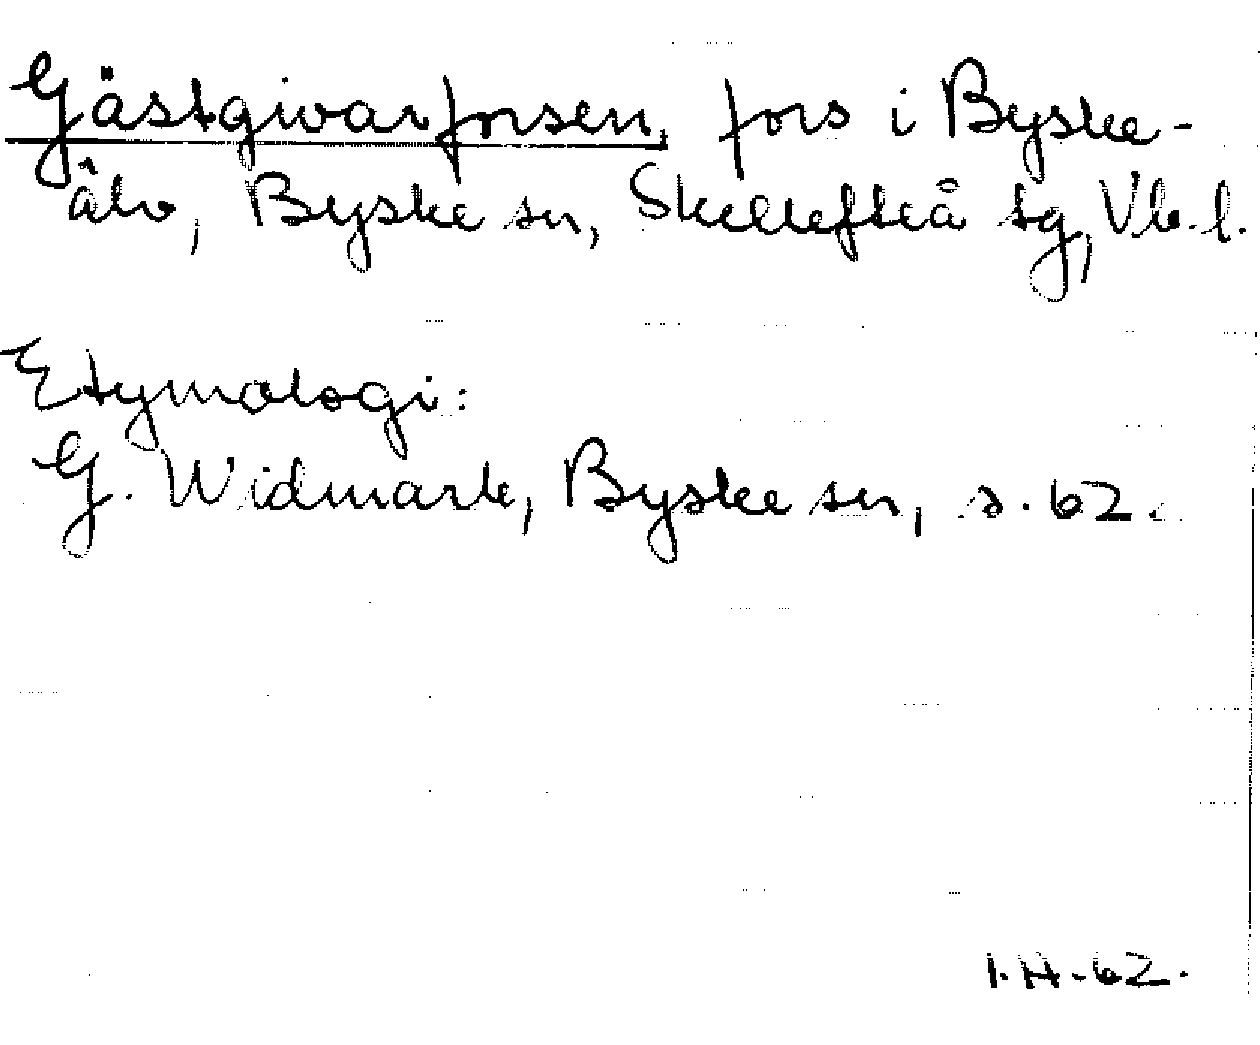 Gästgivarforsen, fors i Byske-
älv, Byske sn, Skellefteå tg, Vb. l.
Etymologi:
G. Widmark, Byske sn, s. 62.
I. H-62.